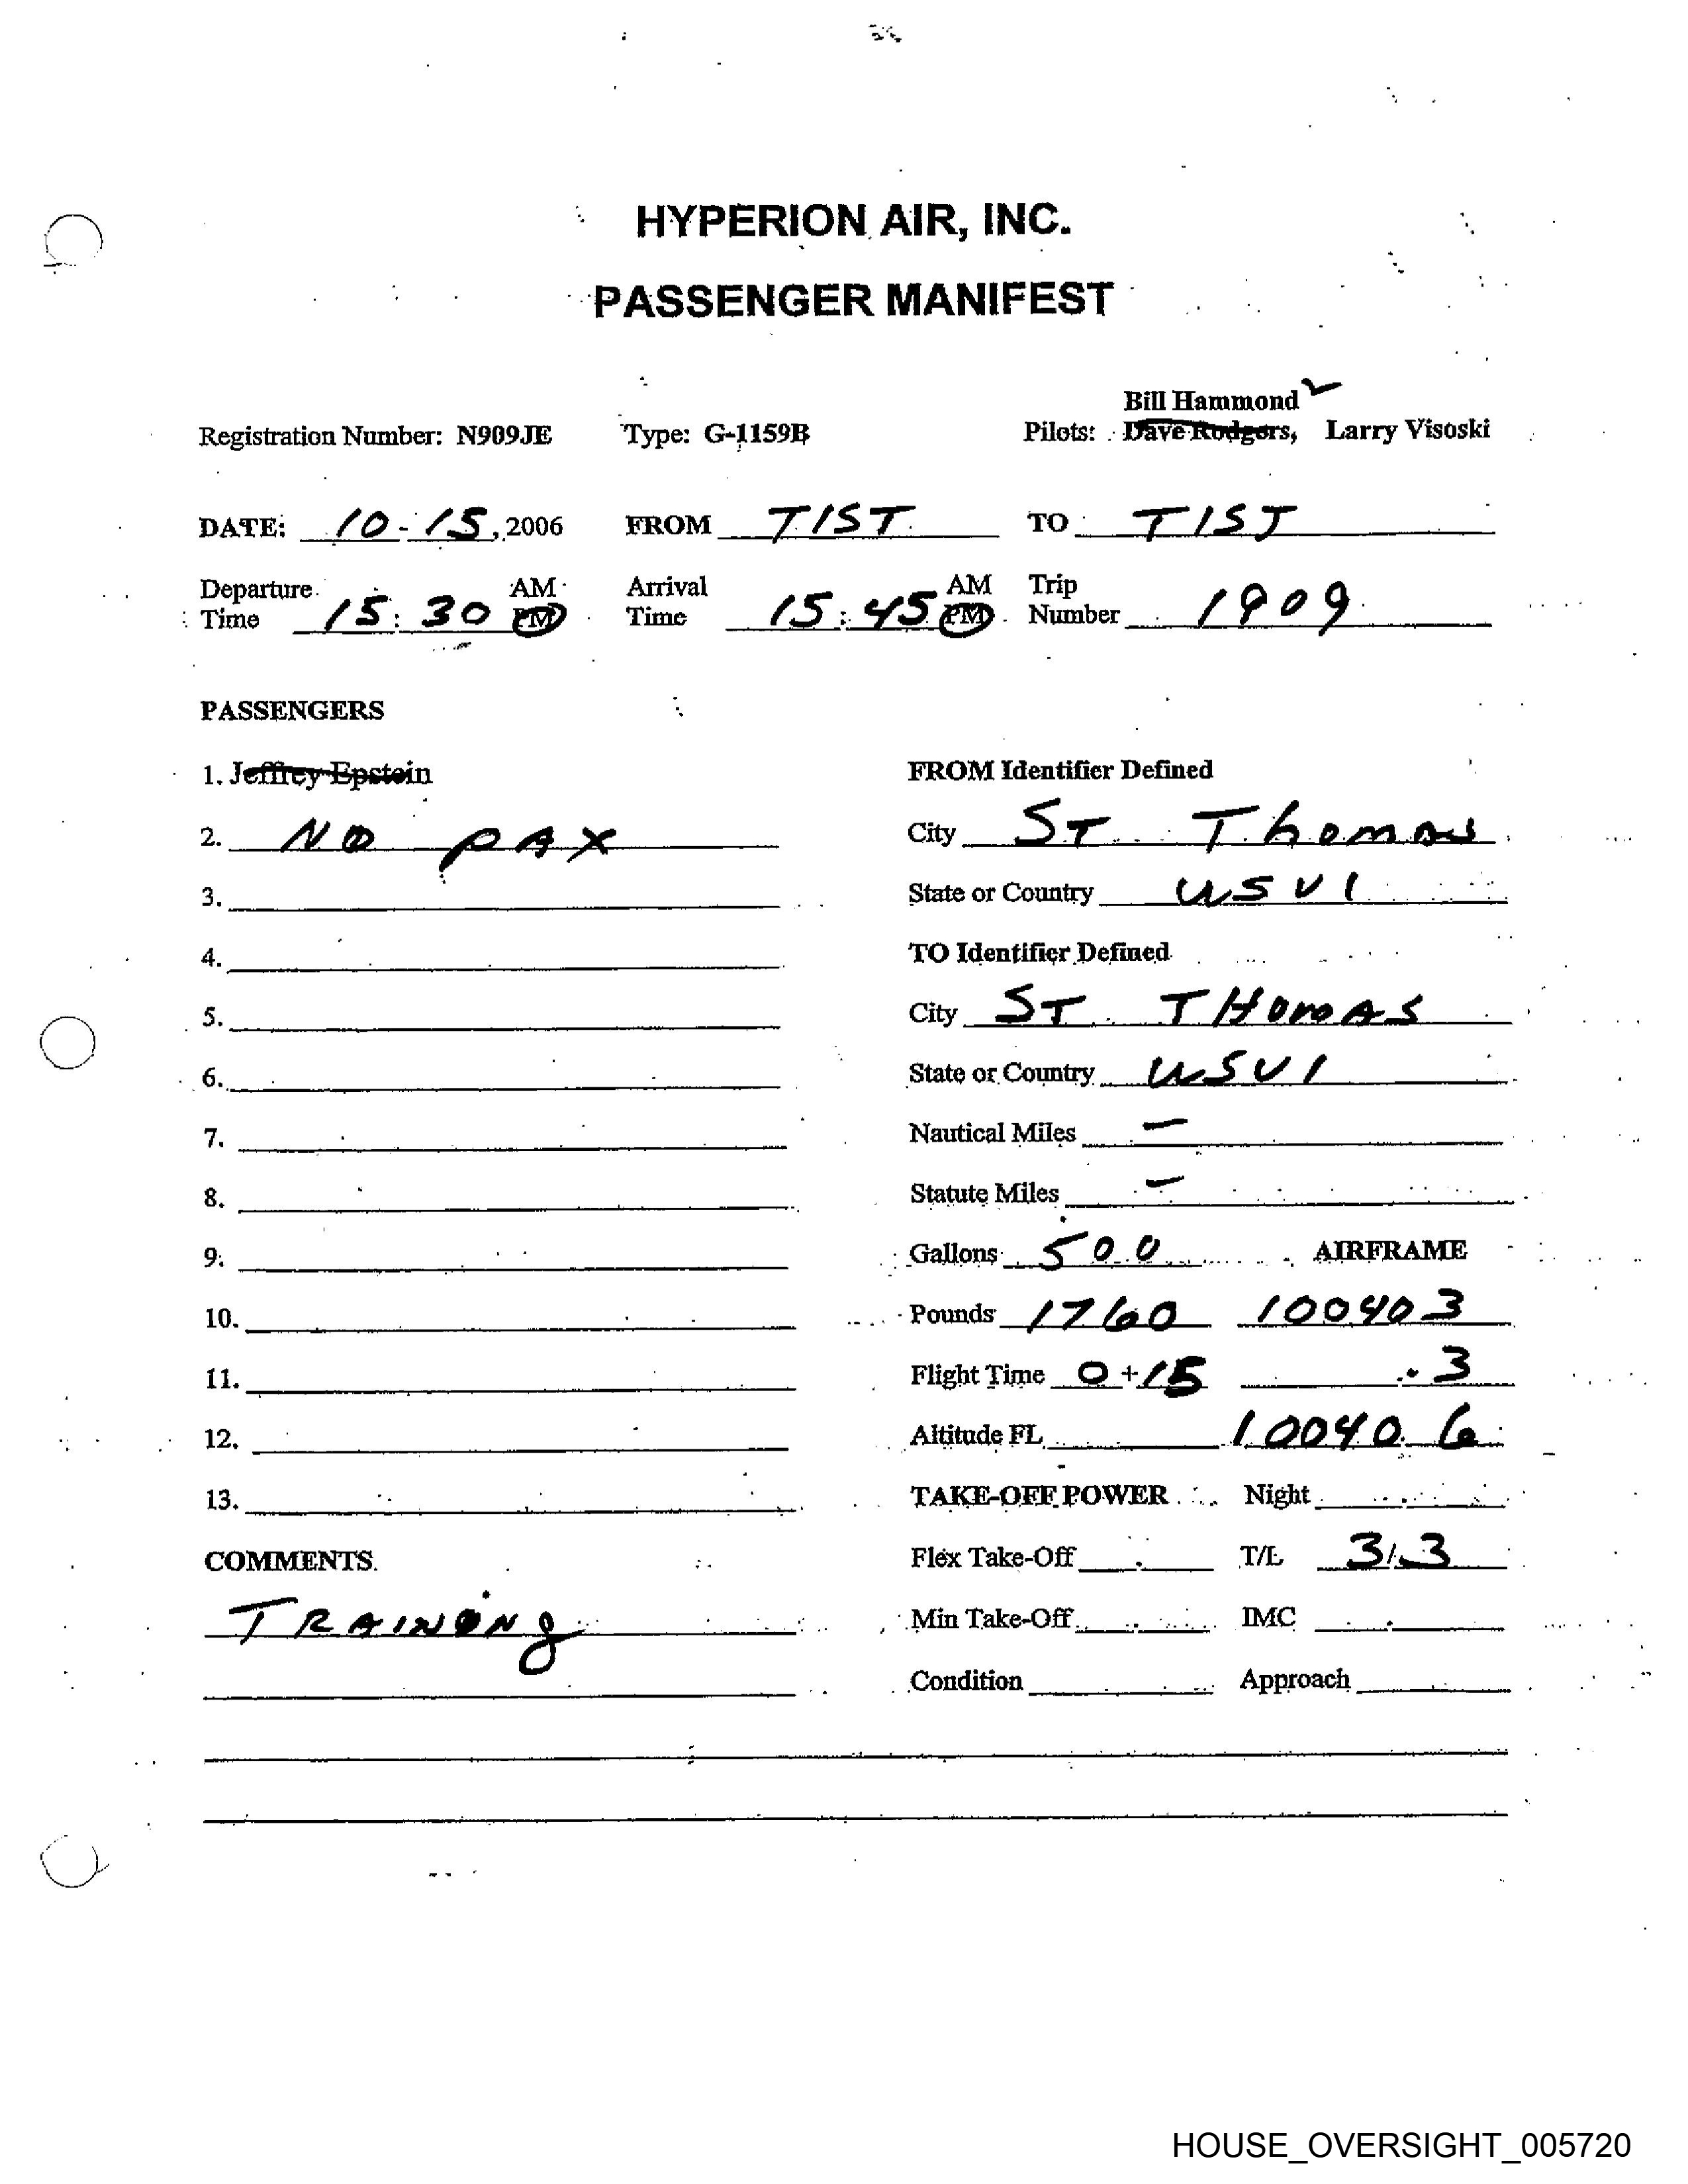 HYPERION AIR, INC.
PASSENGER MANIFEST
Bill Hammond
Registration Number: N909JE Type: G-1159B Pilots: Dave Rodgers, Larry Visoski
DATE: 10-15, 2006 FROM TIST TO TIST
Departure Time 15:30 AM PM Arrival Time 15:45 AM PM Trip Number 1909
PASSENGERS
1. Jeffrey Epstein FROM Identifier Defined
2. NO PAX City ST Thomas
3. State or Country USVI
4. TO Identifier Defined
5. City ST THOMAS
6. State or Country USVI
7. Nautical Miles –
8. Statute Miles –
9. Gallons 500 AIRFRAME
10. Pounds 1760 10040 3
11. Flight Time 0+15 .3
12. Altitude FL 10040.6
13. TAKE-OFF POWER Night
COMMENTS Flex Take-Off T/L 3/3
TRAINING Min Take-Off IMC
Condition Approach
HOUSE_OVERSIGHT_005720